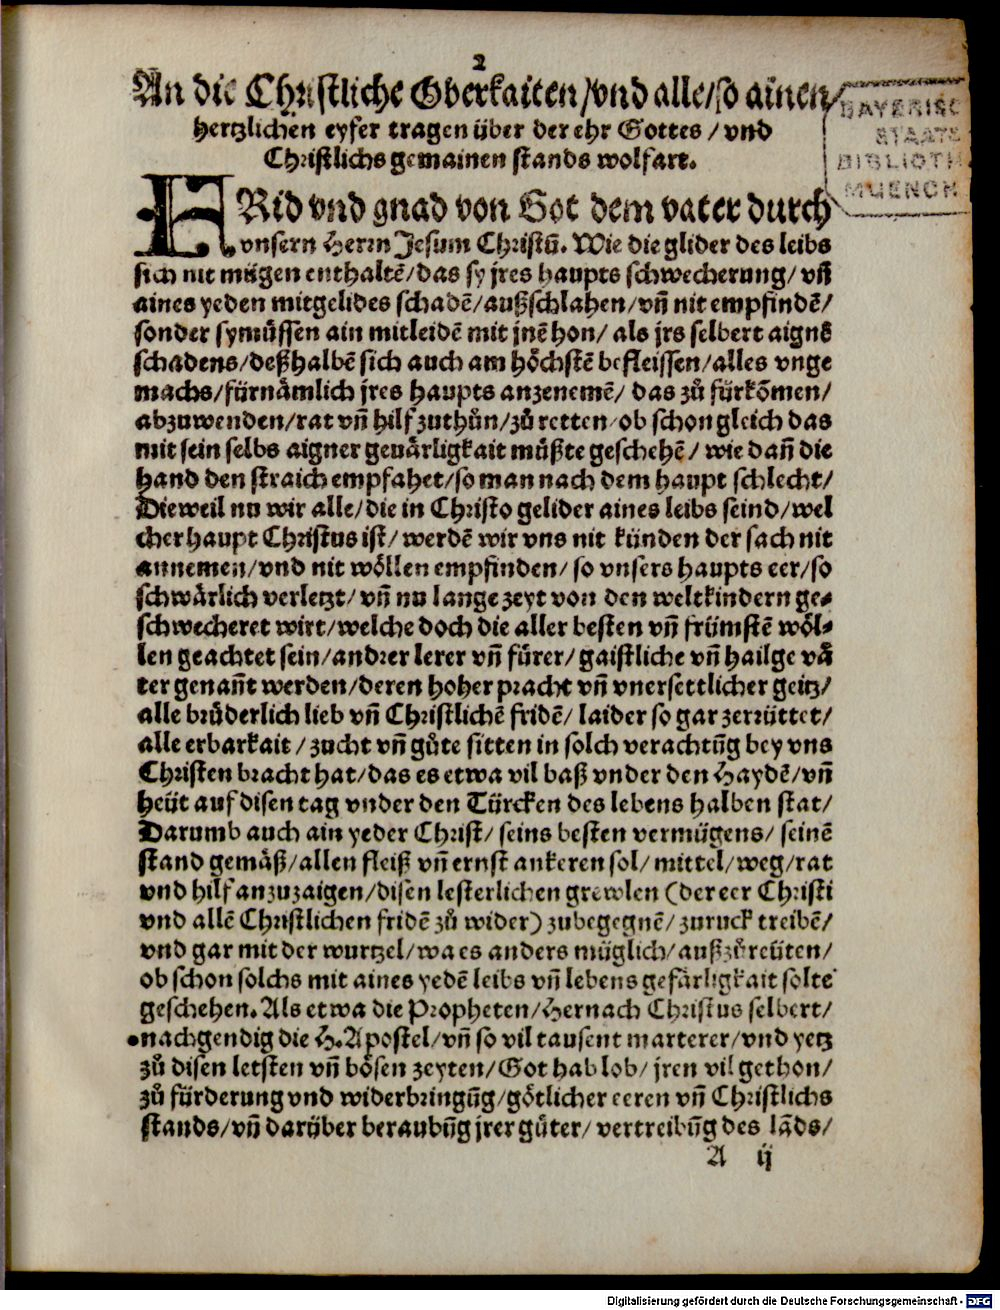 2
An die Christliche Oberkaiten/vnd alle/so ainen/
hertzlichen eyfer tragen über der ehr Gottes/vnd
Christlichs gemainen stands wolfart.
FRid vnd gnad von Got dem vater durch
vnsern Herrn Jesum Christū. Wie die glider des leibs
sich nit mügen enthaltē/das sy jres haupts schwecherung/vñ
aines yeden mitgelides schadē/außschlahen/vñ nit empfindē/
sonder sy müssen ain mitleidē mit jnē hon/ als jrs selbert aignē
schadens/deßhalbē sich auch am höchstē befleissen/alles vnge
machs/fürnämlich jres haupts anzenemē/ das zů fürkōmen/
abzuwenden/rat vñ hilf zuthůn/zů retten/ob schon gleich das
mit sein selbs aigner geuärligkait müßte geschehē/ wie dañ die
hand den straich empfahet/so man nach dem haupt schlecht/
Dieweil nu wir alle/die in Christo gelider aines leibs seind/wel
cher haupt Christus ist/werdē wir vns nit künden der sach nit
annemen/vnd nit wöllen empfinden/ so vnsers haupts eer/so
schwärlich verletzt/vñ nu lange zeyt von den weltkindern ge-
schwecheret wirt/welche doch die aller besten vñ frümstē wöl-
len geachtet sein/andrer lerer vñ fürer/ gaistliche vñ hailge vä
ter genañt werden/deren hoher pracht vñ vnersettlicher geitz/
alle brüderlich lieb vñ Christlichē fridē/ laider so gar zerrüttet/
alle erbarkait/zucht vñ gůte sitten in solch verachtūg bey vns
Christen bracht hat/das es etwa vil baß vnder den Haydē/vñ
heüt auf disen tag vnder den Türcken des lebens halben stat/
Darumb auch ain yeder Christ/ seins besten vermügens/ seinē
stand gemäß/allen fleiß vñ ernst ankeren sol/ mittel/weg/rat
vnd hilf anzuzaigen/disen lesterlichen grewlen (der eer Christi
vnd allē Christlichen fridē zů wider) zubegegnē/zuruck treibē/
vnd gar mit der wurtzel/wa es anders müglich/außzůreüten/
ob schon solchs mit aines yedē leibs vñ lebens gefärligkait solte
geschehen. Als etwa die Propheten/Hernach Christus selbert/
nachgendig die H. Apostel/vñ so vil tausent marterer/vnd yetz
zů disen letsten vñ bösen zeyten/Got hab lob/ jren vil gethon/
zů fürderung vnd widerbringūg/götlicher eeren vñ Christlichs
stands/vñ darüber beraubūg jrer gůter/ vertreibūg des lāds/
A ij
BAYERISC
STAATS
BIBLIOTH
MUENCH
Digitalisierung gefördert durch die Deutsche Forschungsgemeinschaft - DFG